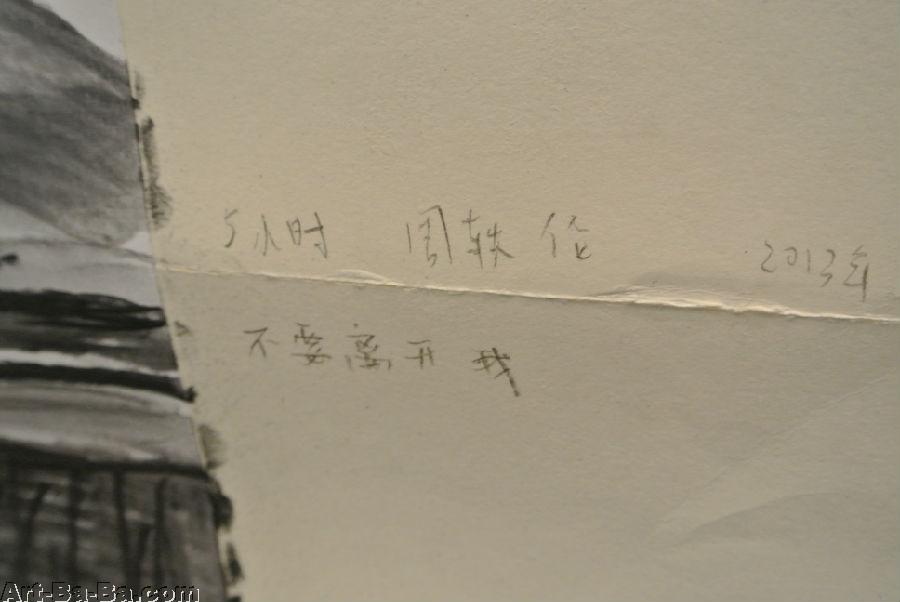 5小时 周轶伦 2013年
不要离开我
Art-Ba-Ba.com